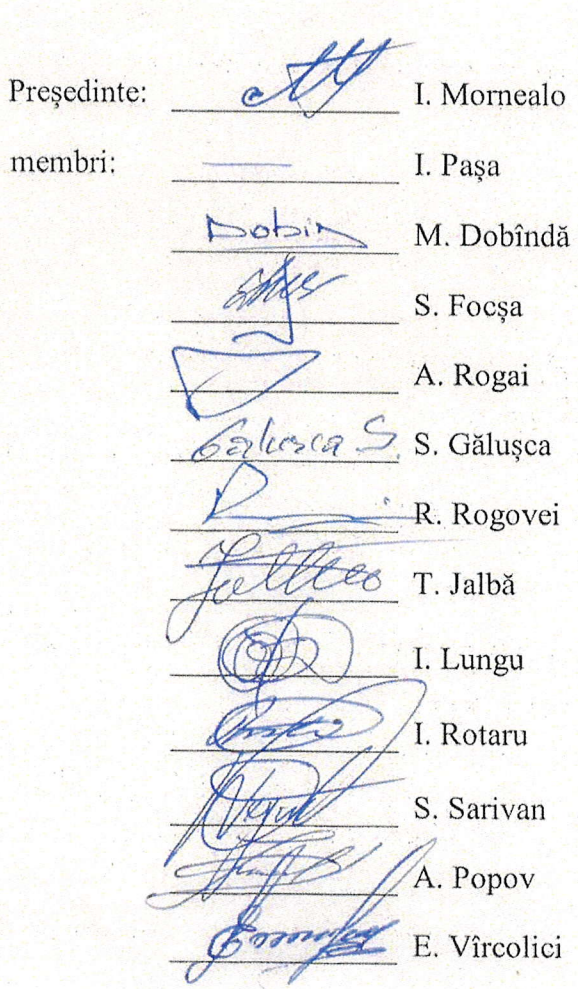 Președinte: I. Mornealo
membri: I. Pașa
Dobin M. Dobîndă
S. Focșa
A. Rogai
Gălușca S. S. Gălușca
R. Rogovei
T. Jalbă
I. Lungu
I. Rotaru
S. Sarivan
A. Popov
E. Vîrcolici